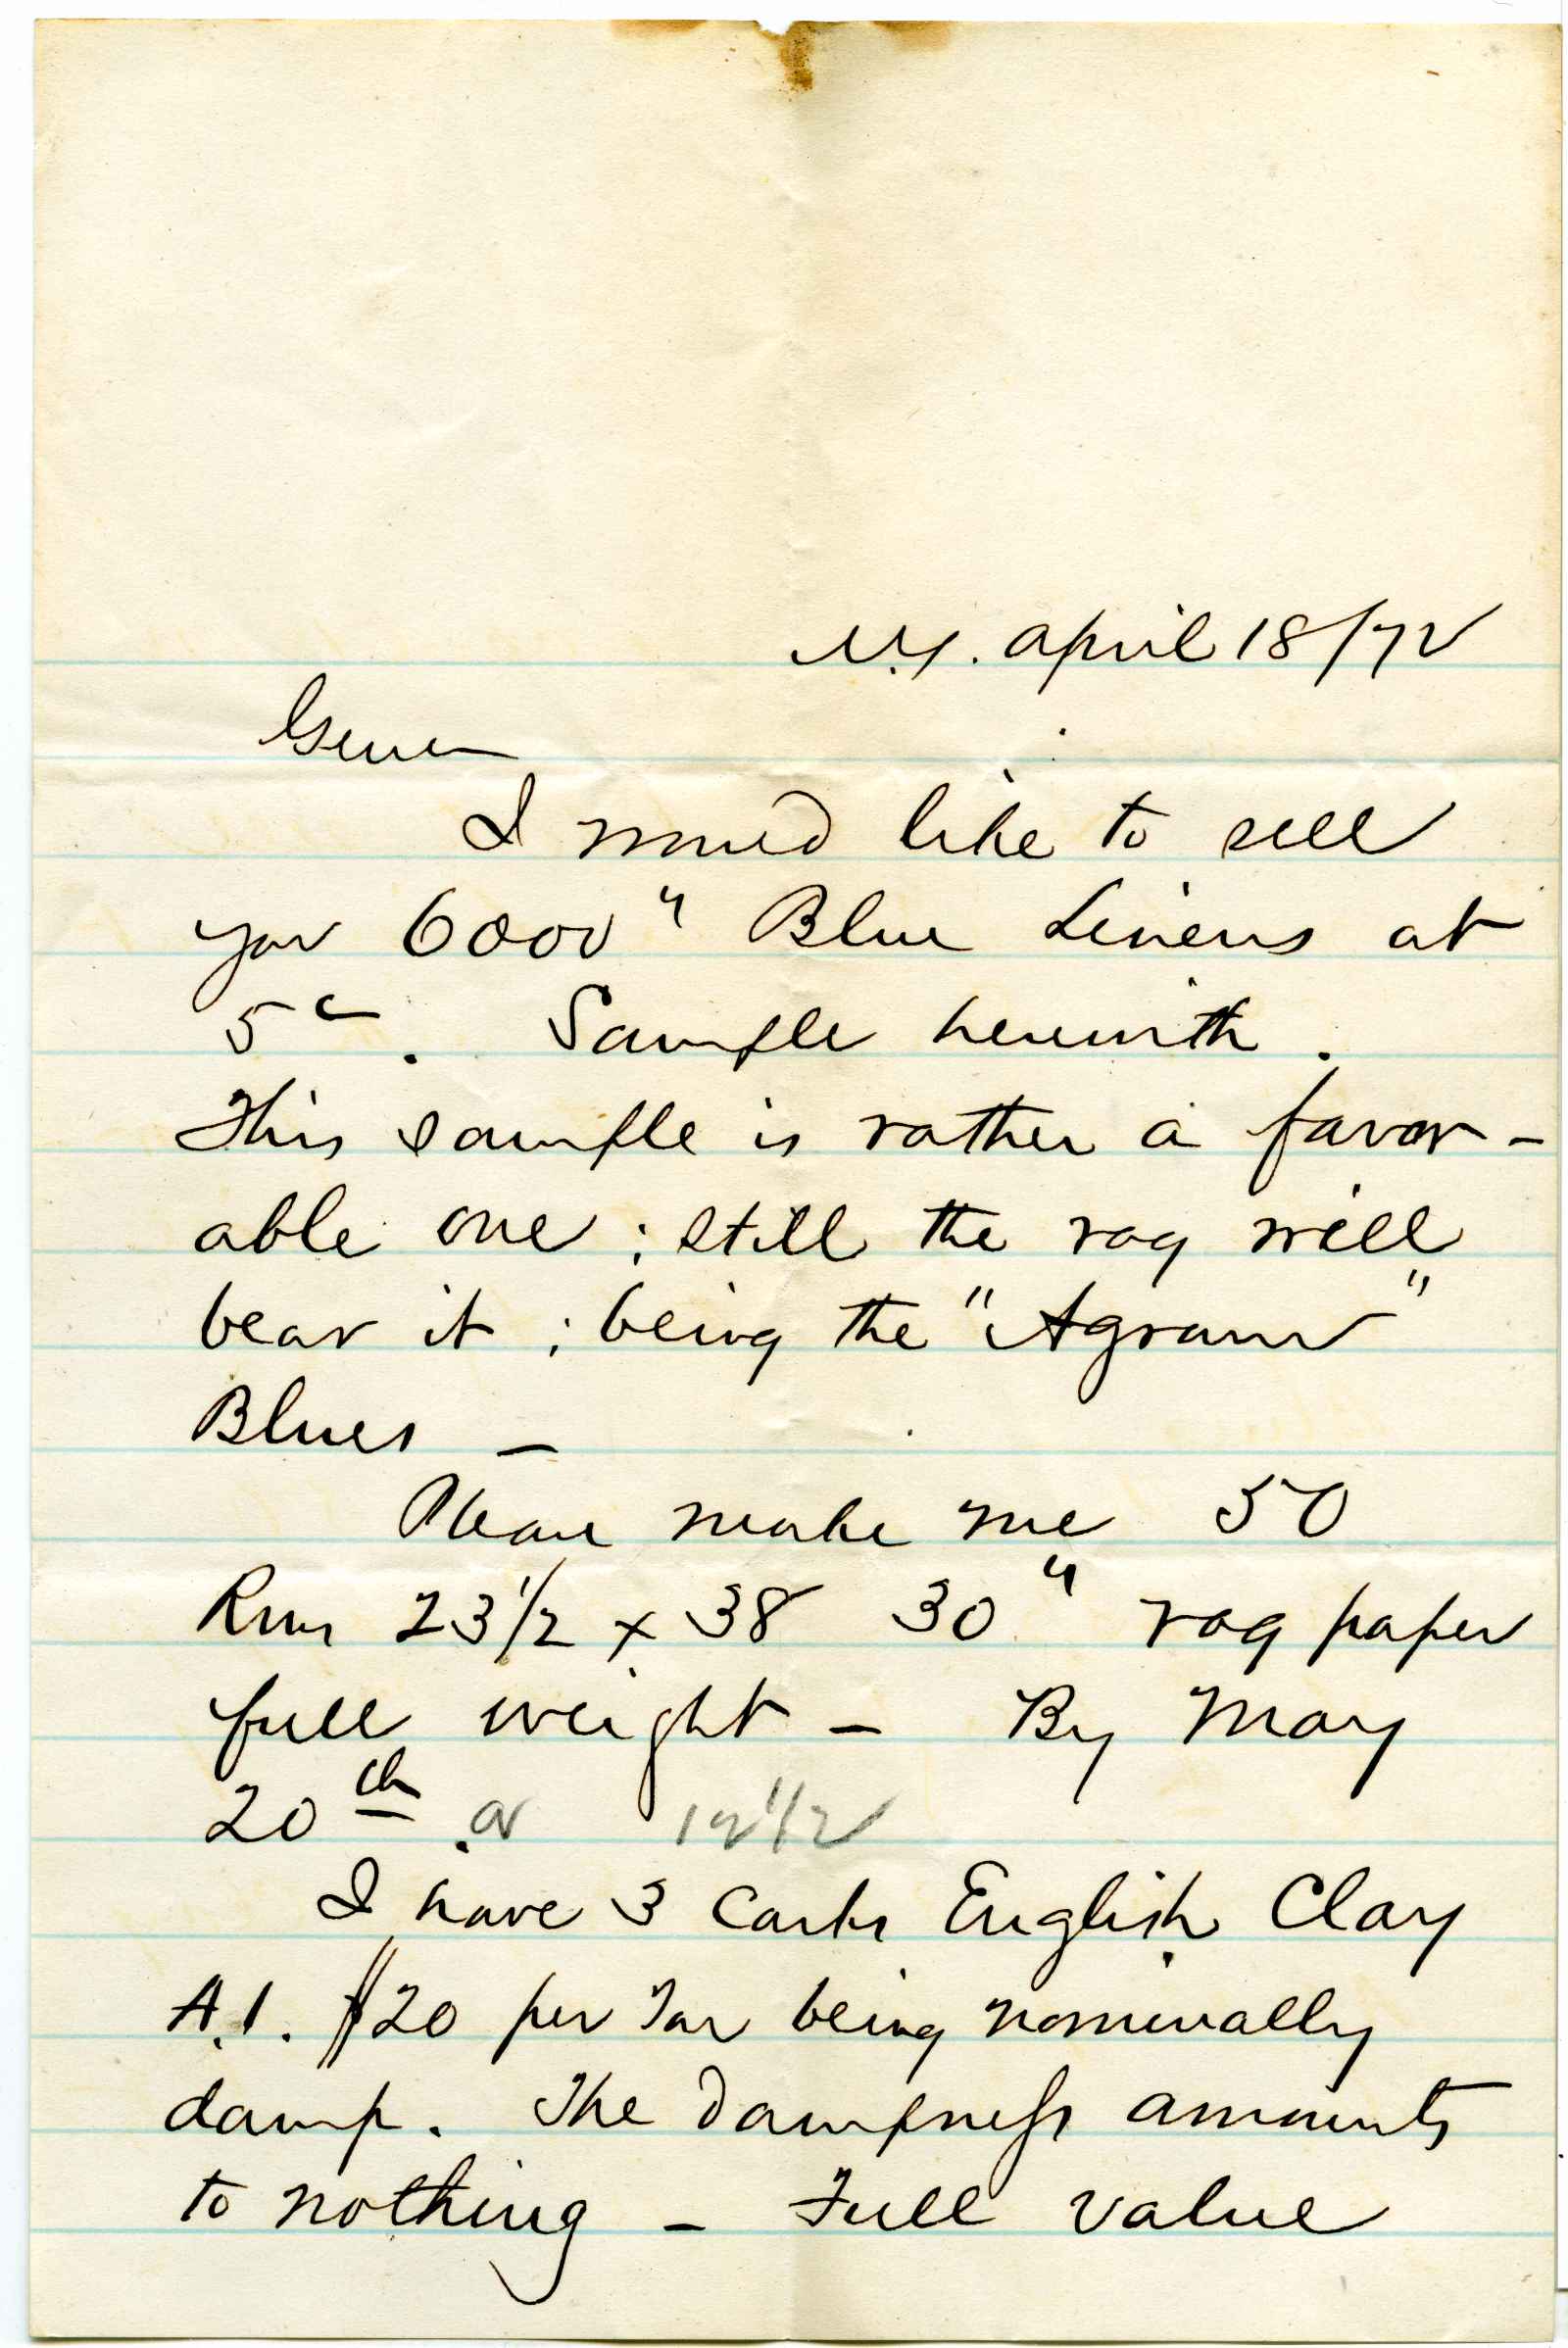 N.Y. April 18/72
Gem
I would like to sell
you 6000 " Blue Linens at
5c. Sample herewith.
This sample is rather a favor-
able one; still the rag will
bear it; being the "Agram"
Blues –
Please make me 50
Rms 23 1/2 x 38 30 " rag paper
full weight – By May
20th or 12 1/2
I have 3 Casks English Clay
A.1. $20 per Ton being nominally
damp. The dampness amounts
to nothing – Full value